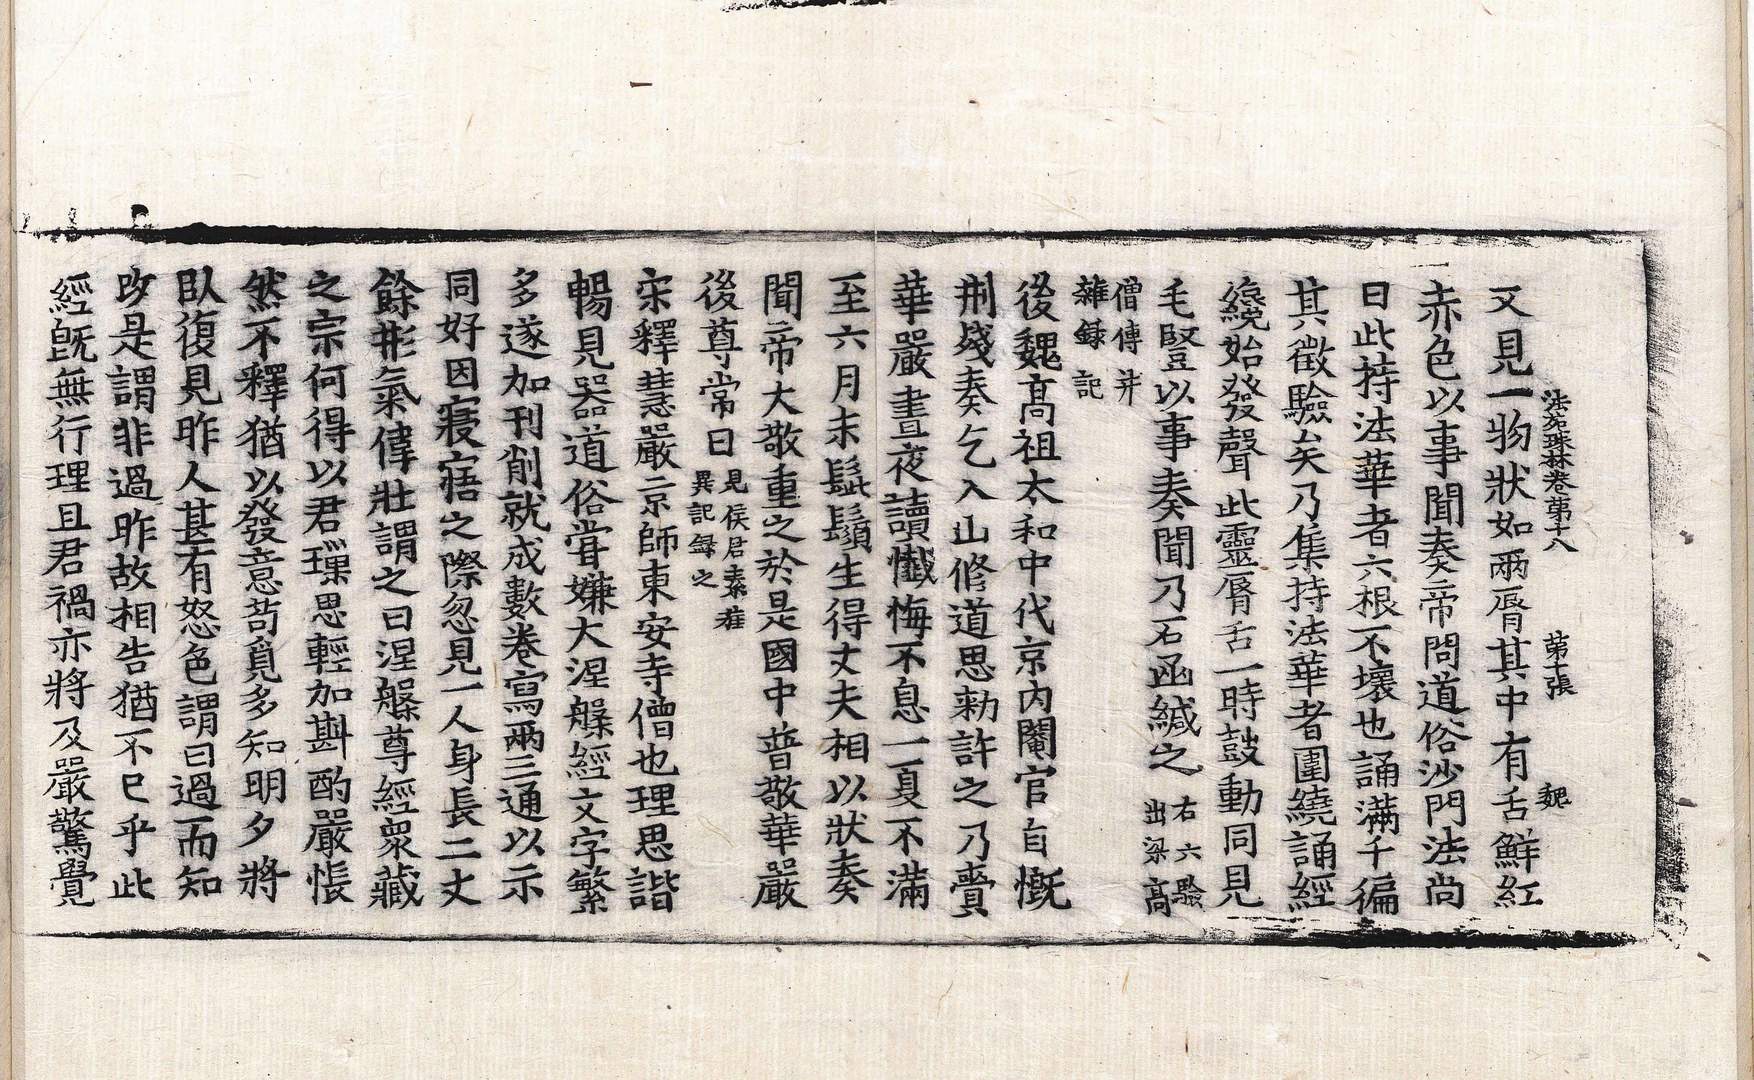 法苑珠林卷第十八 第十張 魏
又見一物狀如兩脣其中有舌鮮紅
赤色以事聞奏帝問道俗沙門法尚
曰此持法華者六根不壞也誦滿千徧
其徵驗矣乃集持法華者圍繞誦經
繞始發聲此靈脣舌一時鼓動同見
毛豎以事奏聞乃石函緘之 右六驗出梁高
僧傳并雜錄記
後魏高祖太和中代京內閹官自慨
刑殘奏乞入山修道思勑許之乃賷
華嚴晝夜讀懺悔不息一夏不滿
至六月末髭鬚生得丈夫相以狀奏
聞帝大敬重之於是國中普敬華嚴
後尊常日 見侯君素旌異記錄之
宋釋慧嚴京師東安寺僧也理思諧
暢見器道俗甞嫌大涅槃經文字繁
多遂加刊削就成數卷寫兩三通以示
同好因寢寤之際忽見一人身長二丈
餘形氣偉壯謂之曰涅槃尊經眾藏
之宗何得以君璅思輕加斟酌嚴悵
然不釋猶以發意苟覓多知明夕將
臥復見昨人甚有怒色謂曰過而知
改是謂非過昨故相告猶不已乎此
經旣無行理且君禍亦將及嚴驚覺